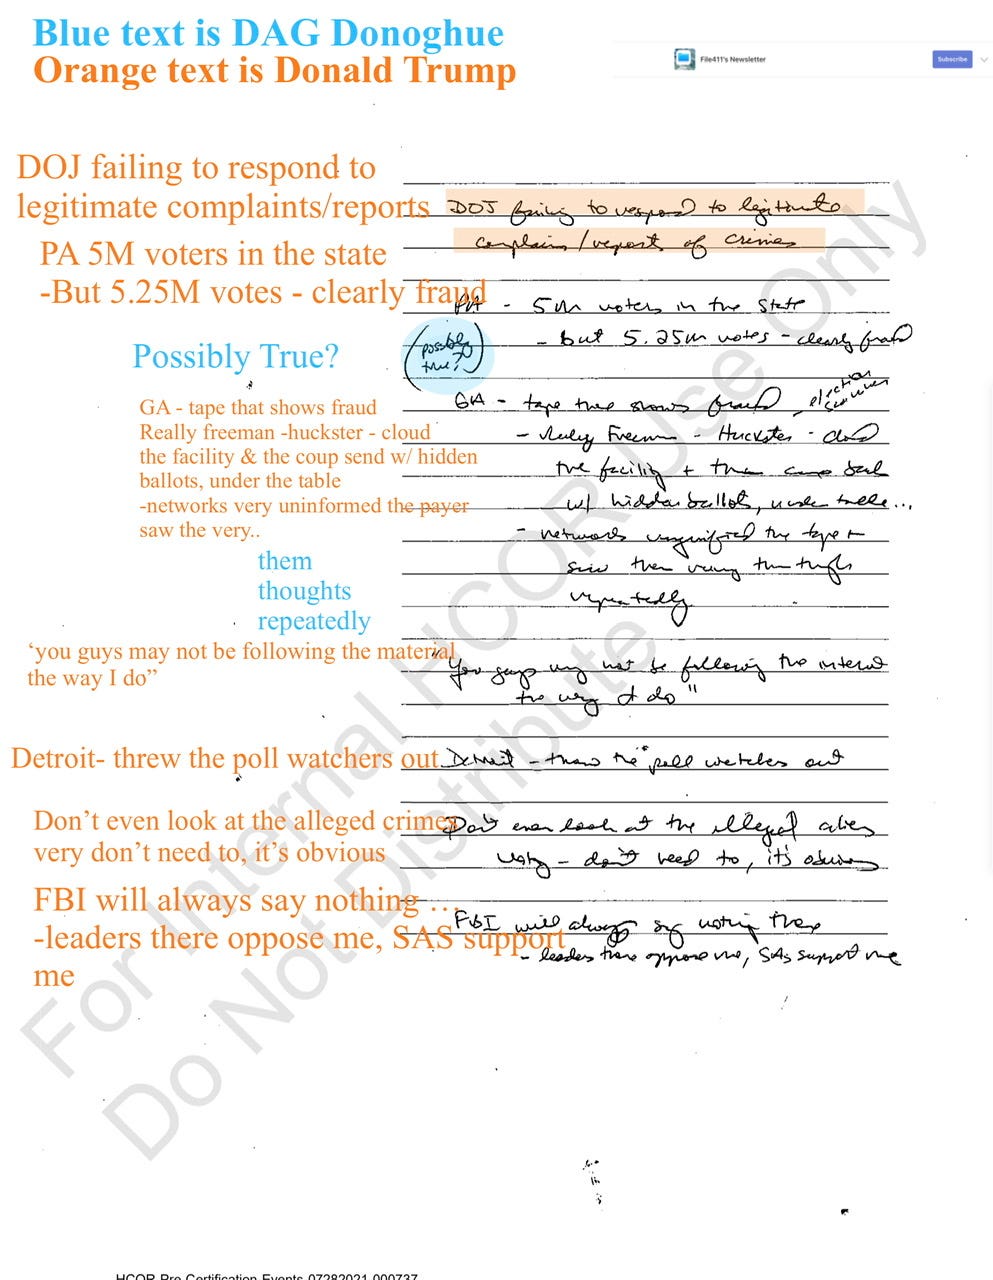 Blue text is DAG Donoghue
Orange text is Donald Trump
File411's Newsletter
Subscribe
DOJ failing to respond to
legitimate complaints/reports
DOJ failing to respond to legitimate
complaints/reports of crimes
PA 5M voters in the state
-But 5.25M votes - clearly fraud
PA - 5M voters in the state
- but 5.25M votes - clearly fraud
Possibly True?
(possibly
true?)
GA - tape that shows fraud
Really freeman -huckster - cloud
the facility & the coup send w/ hidden
ballots, under the table
-networks very uninformed the payer
saw the very..
GA - tape that shows fraud - election
- Ruby Freeman - Huckster - closed
the facility + then came back
w/ hidden ballots, under table...
- networks magnified the tape +
saw them running them through
repeatedly
them
thoughts
repeatedly
‘you guys may not be following the material
the way I do”
"You guys may not be following the internet
the way I do"
Detroit- threw the poll watchers out
Detroit - threw the poll watchers out
Don’t even look at the alleged crimes
very don’t need to, it’s obvious
Don't even look at the illegal aliens
voting - don't need to, it's obvious
FBI will always say nothing ...
-leaders there oppose me, SAS support
me
FBI will always say nothing there
- leaders there oppose me, SAs support me
For Internal HCOR Use Only
Do Not Distribute
HCOR-Pre-Certification-Events-07282021-000737